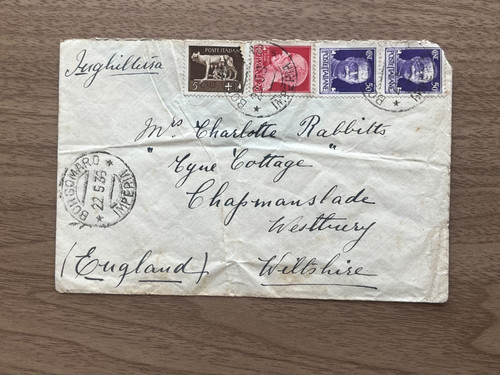 POSTE ITALIANE
5
Inghilterra
50
50
Mrs Charlotte Rabbitts
"Tyne Cottage"
Chapmanslade
Westbury
Wiltshire
(England)
BORGOMARO
22.5.36
IMPERIA